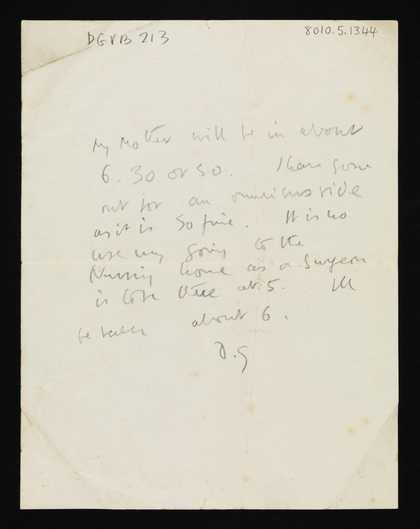 DGVB 213
8010.5.1344
My Mother will be in about
6.30 or so. I have gone
out for an omnibus ride
as it is so fine. It is no
use my going to the
Nursing home as a Surgeon
is to be there at 5. I'll
be back about 6.
D.G